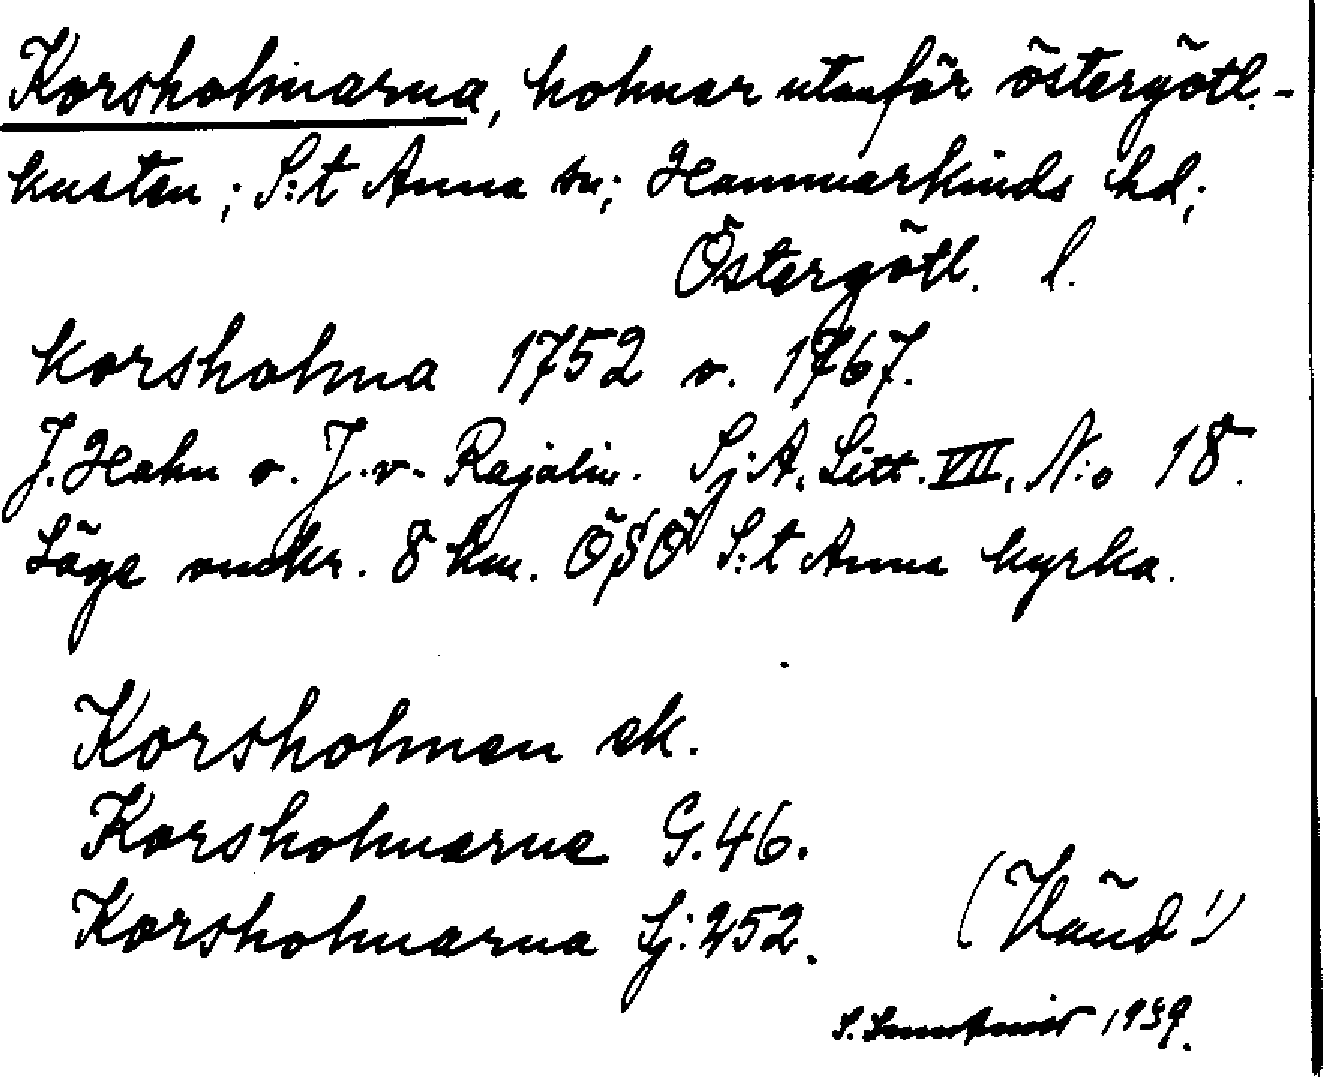 Korsholmarna, holmar utanför östergötl.-
kusten; S:t Anna sn; Hammarkinds hd;
Östergötl. l.
Korsholma 1752 o. 1767.
J. Hahn o. J. v. Rajalin. Sj: A. Litt. VII. N:o 18.
Läge omkr. 8 km. ÖSÖ S:t Anna kyrka.
Korsholmen ek.
Korsholmarna G. 46.
Korsholmarna Sj: 252.
(Vänd!)
S. 1939.